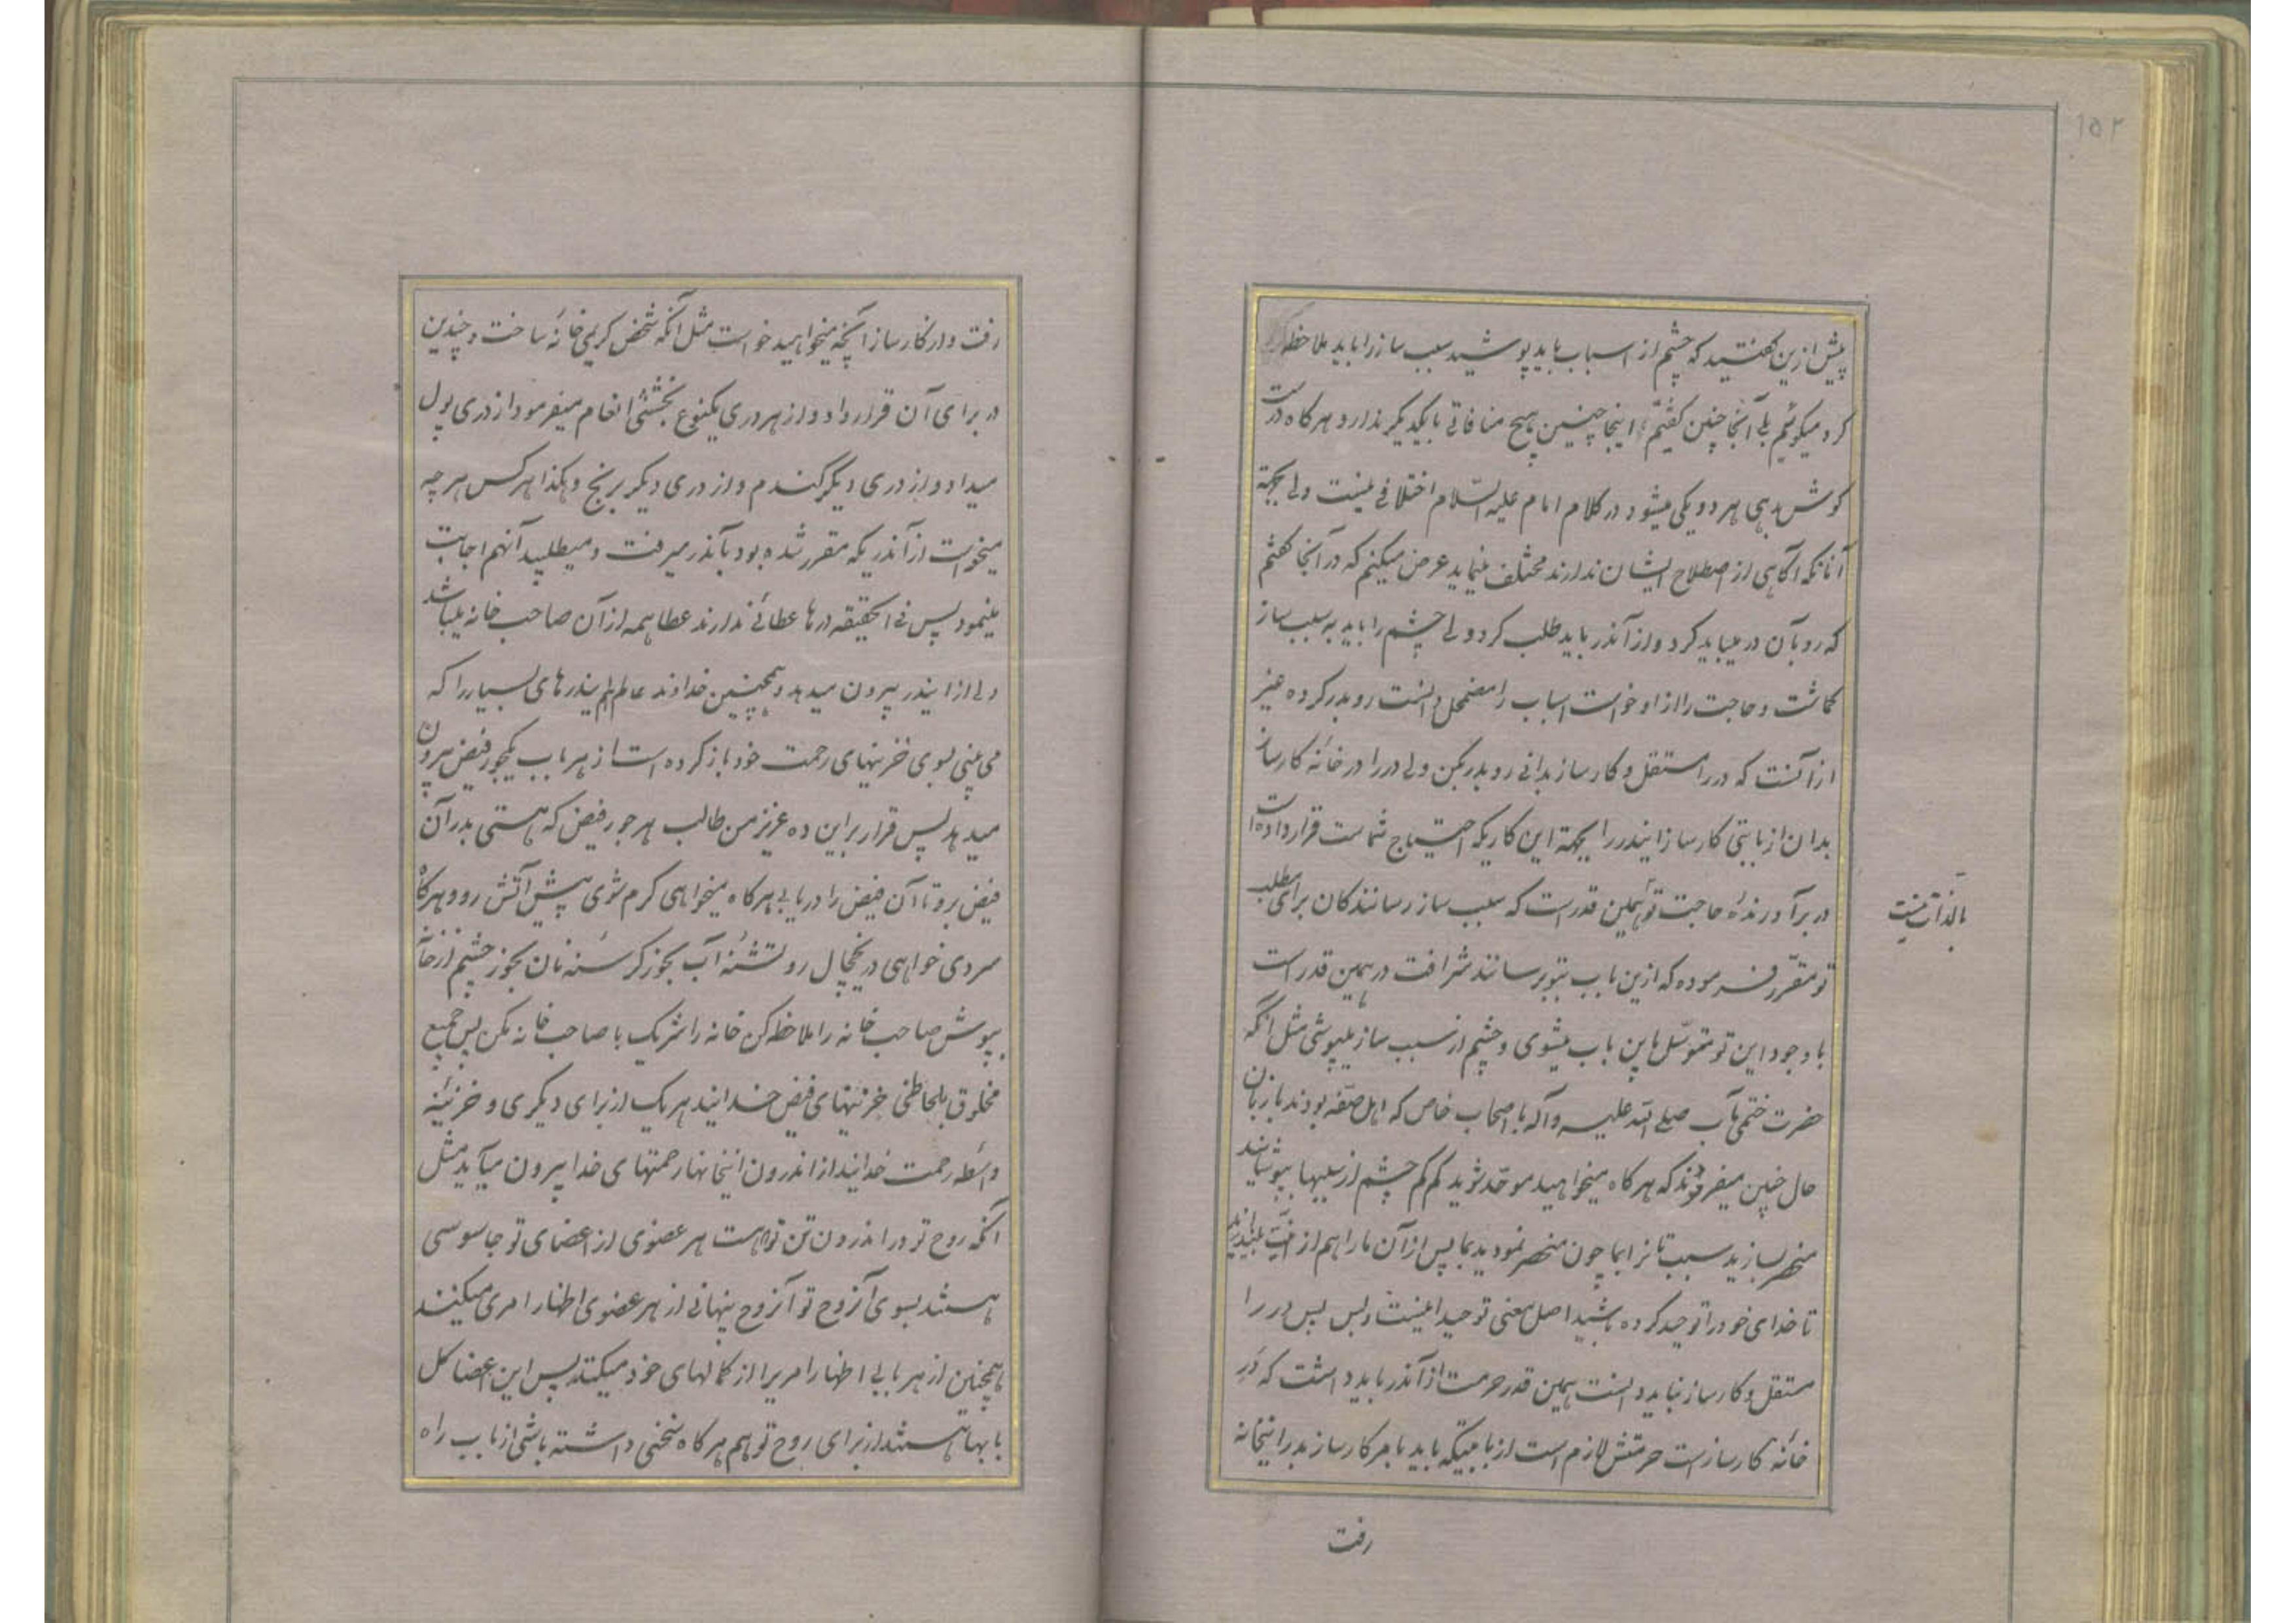 ۱۵۲
پیش ازین گفتید که چشم از اسباب باید پوشید سبب ساز را باید ملاحظه
کرد میگوئیم بلی آنجا چنین گفتیم اینجا چنین هیچ منافاتی با یکدیگر ندارد و هر کاه درست
کوش دهی هر دو یکی میشود در کلام امام علیه السّلام اختلافی نیست ولی بجهة
آنانکه اکاهی از اصطلاح ایشان ندارند مختلف مینماید عرض میکنم که در آنجا کفتم
که رو بآن در میباید کرد و از آندر باید طلب کرد ولی چشم را باید به سبب ساز
کماشت و حاجت را از او خواست اسباب را مضمحل دانست رو بدر کرده غیر
از آنست که در را مستقل و کارساز بدانی رو بدر بکن ولی در را در خانهٔ کارساز
بدان از بابتی کارساز ایندر را بجهة این کاریکه احتیاج شماست قرار داده است
در برآورندهٔ حاجت تو همین قدر است که سبب ساز رسانندکان برای مطلب
بالذات نیست
تو مقرّر فرموده که ازین باب بتو برسانند شرافت در همین قدر است
با وجود این تو متوسّل باین باب میشوی و چشم از سبب ساز میپوشی مثل انکه
حضرت ختمی مآب صلی الله علیه و آله با اصحاب خاص که اهل صفّه بودند با زبان
حال چنین میفرمودند که هر کاه میخواهید موحّد شوید کم کم چشم از سببها بپوشانید
منحصر سازید سبب تانرا بما چون منحصر نمودید بما پس از آن ما را هم از
تا خدای خود را توحید کرده باشید اصل معنی توحید اینست و بس پس در را
مستقل و کارساز نباید دانست همین قدر حرمت از آندر باید داشت که دَرِ
خانهٔ کارساز است حرمتش لازم است از بابتیکه باید بامر کارساز بدر اینخانه
رفت
رفت و از کارساز آنچه میخواهید خواست مثل آنکه شخص کریمی خانهٔ ساخت و چندین
در برای آن قرار داد و از هر دری یکنوع بخششی انعام میفرمود از دری پول
میداد و از دری دیگر گندم و از دری دیکر برنج و هکذا هرکس هرچه
میخواست از آندریکه مقرر شده بود بآندر میرفت و میطلبید آنهم اجابت
مینمود پس فی الحقیقه درها عطائی ندارند عطا همه از آن صاحب خانه میباشد
ولی از ایندر بیرون میدهد و همچنین خداوند عالم هم ایندرهای بسیار را که
می بینی بسوی خزینهای رحمت خود باز کرده است از هر باب یکجور فیض بیرون
میدهد پس قرار بر این ده عزیز من طالب هر جور فیض که هستی بدر آن
فیض برو تا آن فیض را دریابی هرکاه میخواهی کرم شوی پیش آتش رو و هرکاه
سردی خواهی در یخچال رو تشنهٔ آب بخور کرسنه نان بخور چشم از خانه
بپوش صاحب خانه را ملاحظه کن خانه را شریک با صاحب خانه مکن پس جمیع
مخلوق بلحاظی خزینهای فیض خدایند هریک از برای دیکری و خزینهٔ
واسطه رحمت خدایند از اندرون اینخانها رحمتهای خدا بیرون میآید مثل
آنکه روح تو در اندرون تن تو است هر عضوی از اعضای تو جاسوسی
هستند بسوی آنروح تو آنروح پنهانی از هر عضوی اظهار امری میکنند
همچنین از هر بابی اظهار امریرا از کمالهای خود میکند پس این اعضا کل
بابها هستند از برای روح تو هم هرکاه سخنی داشته باشی از باب راه